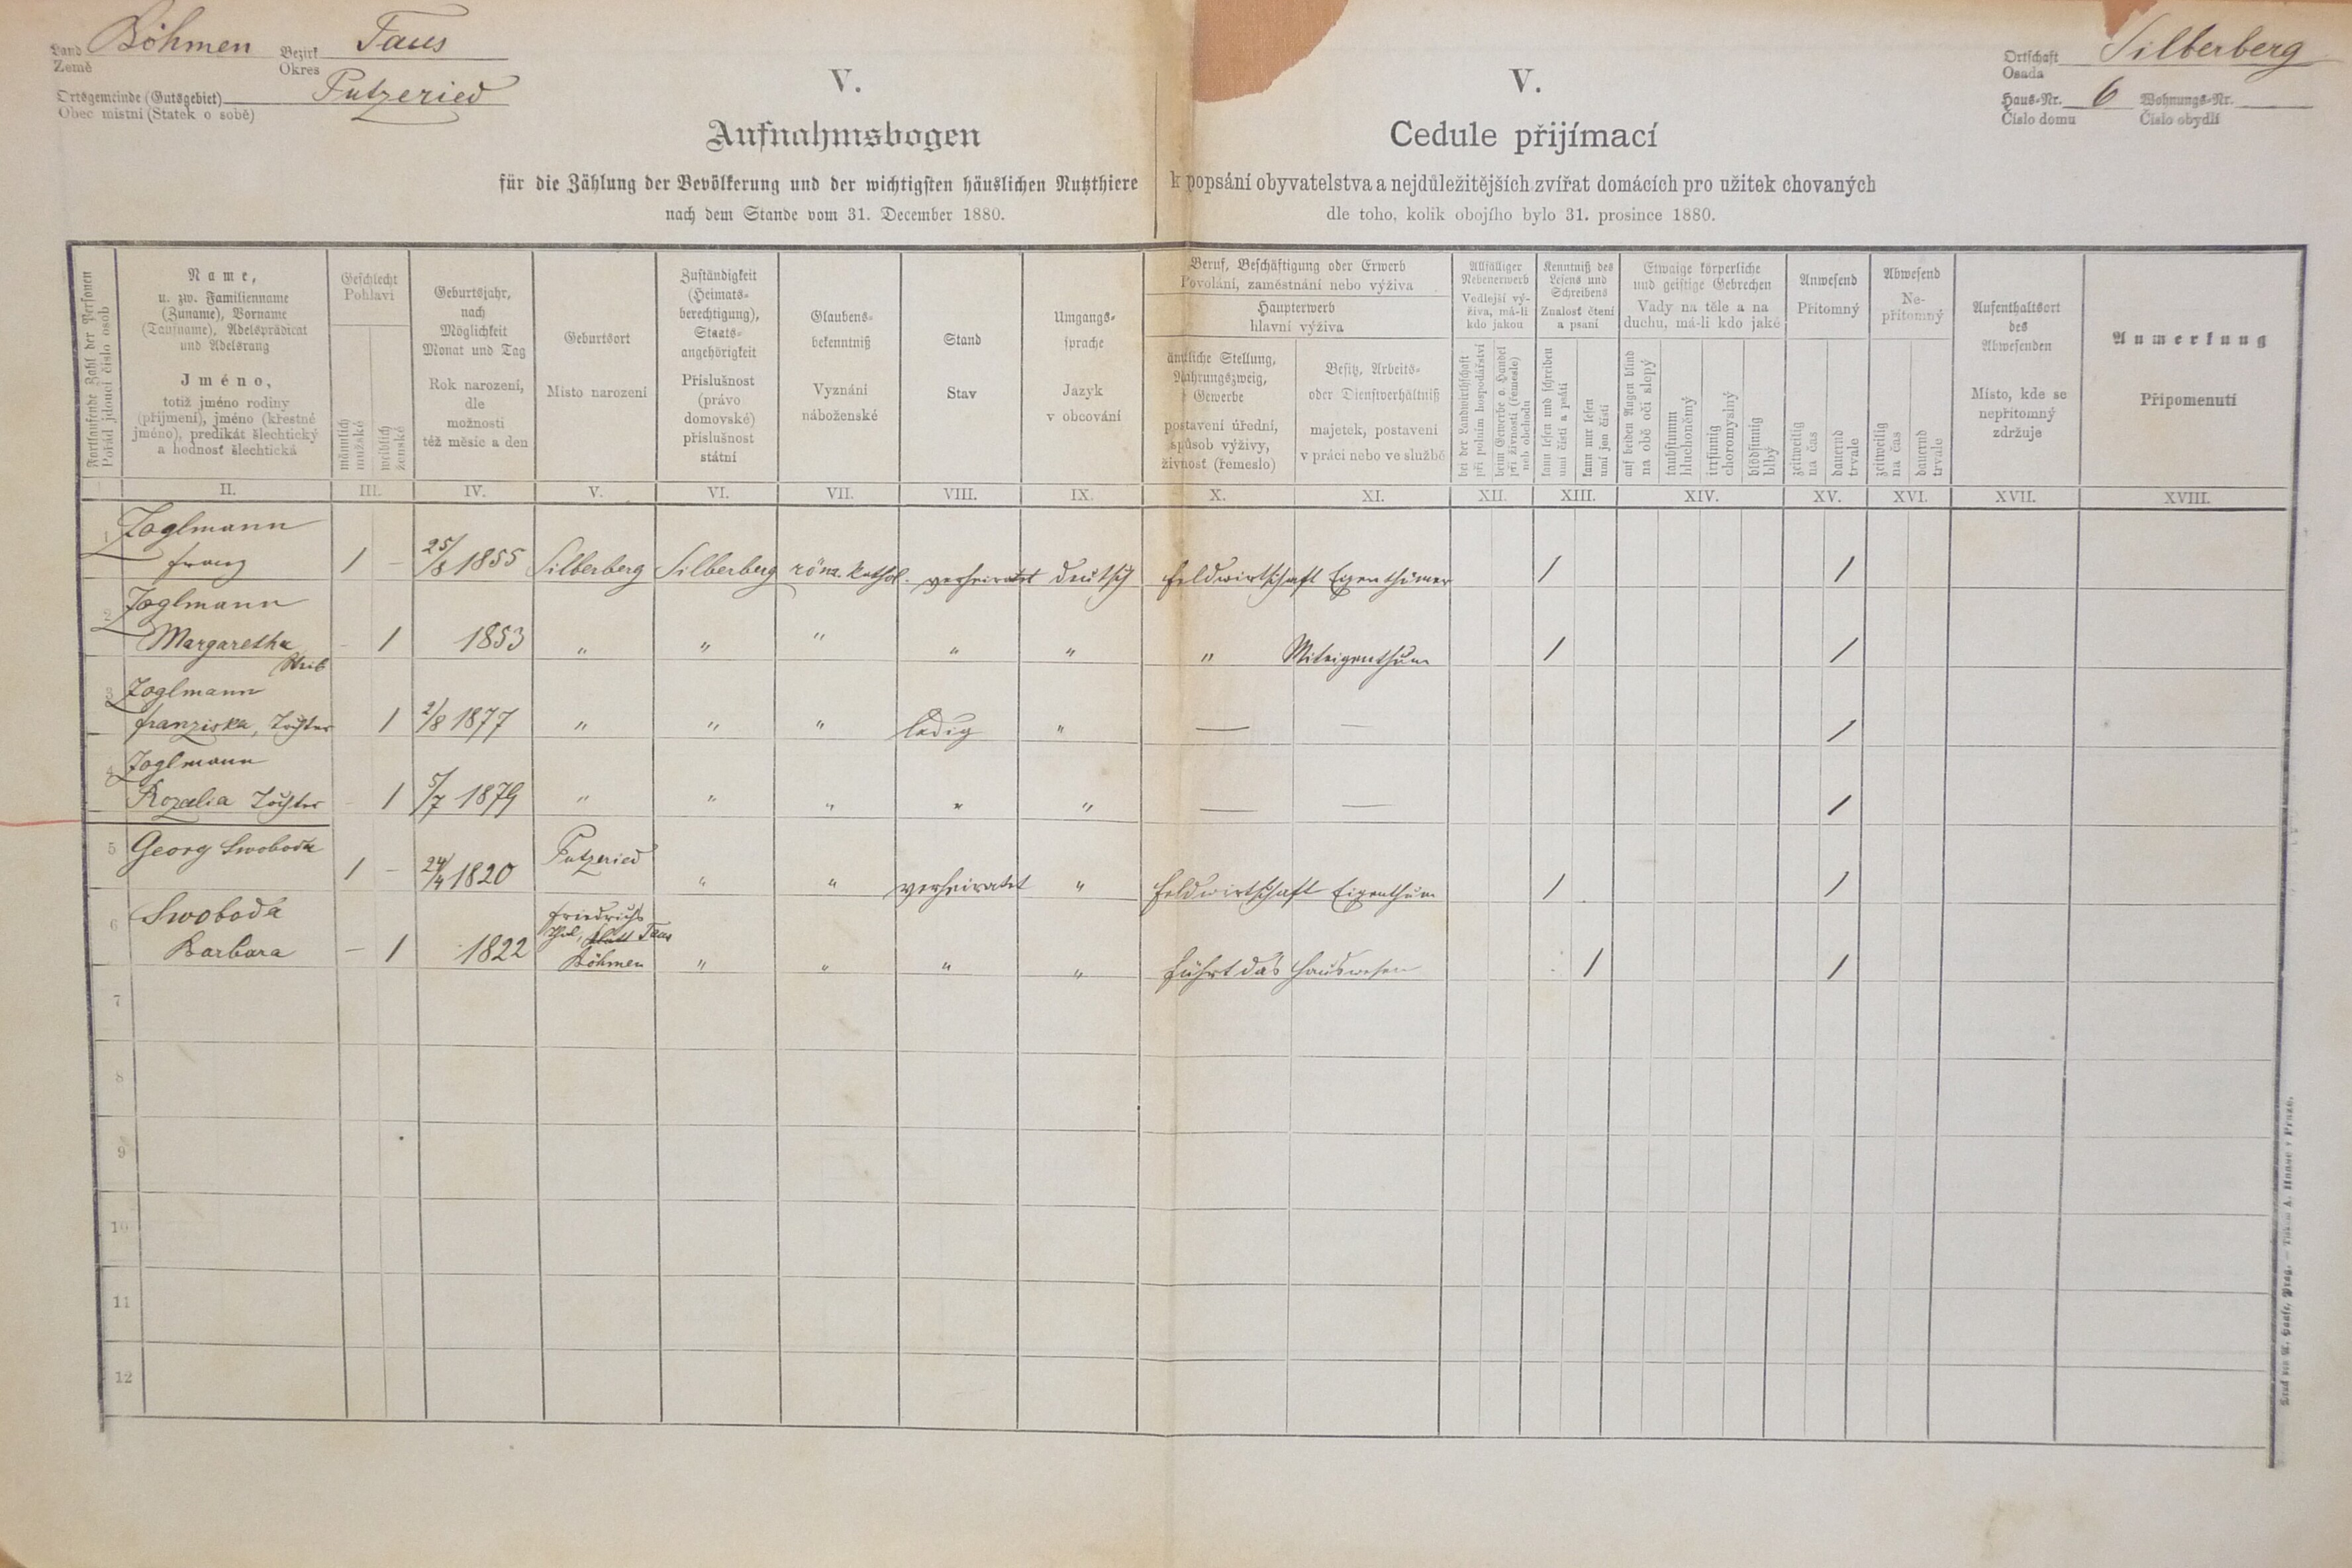 Land Böhmen Bezirk Taus
Země Okres
Ortsgemeinde (Gutsgebiet) Putzeried
Obec místní (Statek o sobě)
Ortschaft Silberberg
Osada
Haus-Nr. 6 Wohnungs-Nr.
Číslo domu Číslo obydlí
V.
Aufnahmsbogen
für die Zählung der Bevölkerung und der wichtigsten häuslichen Nutzthiere
nach dem Stande vom 31. December 1880.
V.
Cedule přijímací
k popsání obyvatelstva a nejdůležitějších zvířat domácích pro užitek chovaných
dle toho, kolik obojího bylo 31. prosince 1880.
Fortlaufende Zahl der Personen
Pořád jdoucí číslo osob
Name,
u. zw. Familienname
(Zuname), Vorname
(Taufname), Adelsprädicat
und Adelsrang
Jméno,
totiž jméno rodiny
(příjmení), jméno (křestné
jméno), predikát šlechtický
a hodnosť šlechtická
Geschlecht
Pohlaví
männlich
mužské
weiblich
ženské
Geburtsjahr,
nach
Möglichkeit
Monat und Tag
Rok narození,
dle
možnosti
též měsíc a den
Geburtsort
Místo narození
Zuständigkeit
(Heimats-
berechtigung),
Staats-
angehörigkeit
Příslušnost
(právo
domovské)
příslušnost
státní
Glaubens-
bekenntniß
Vyznání
náboženské
Stand
Stav
Umgangs-
sprache
Jazyk
v obcování
Beruf, Beschäftigung oder Erwerb
Povolání, zaměstnání nebo výživa
Haupterwerb
hlavní výživa
ämtliche Stellung,
Nahrungszweig,
Gewerbe
postavení úřední,
spůsob výživy,
živnosť (řemeslo)
Besitz, Arbeits-
oder Dienstverhältniß
majetek, postavení
v práci nebo ve službě
Allfälliger
Nebenerwerb
Vedlejší vý-
živa, má-li
kdo jakou
bei der Landwirthschaft
při polním hospodářství
beim Gewerbe o. Handel
při živnosti (řemesle)
neb obchodu
Kenntniß des
Lesens und
Schreibens
Znalosť čtení
a psaní
kann lesen und schreiben
umí čísti a psáti
kann nur lesen
umí jen čísti
Etwaige körperliche
und geistige Gebrechen
Vady na těle a na
duchu, má-li kdo jaké
auf beiden Augen blind
na obě oči slepý
taubstumm
hluchoněmý
irrsinnig
choromyslný
blödsinnig
blbý
Anwesend
Přítomný
zeitweilig
na čas
dauernd
trvale
Abwesend
Ne-
přítomný
zeitweilig
na čas
dauernd
trvale
Aufenthaltsort
des
Abwesenden
Místo, kde se
nepřítomný
zdržuje
Anmerkung
Připomenutí
II. III. IV. V. VI. VII. VIII. IX. X. XI. XII. XIII. XIV. XV. XVI. XVII. XVIII.
1 Zoglmann
Franz 1 - 25/8 1855 Silberberg Silberberg röm. kathol. verheiratet deutsch Feldwirtschaft Eigenthümer 1 1
2 Zoglmann
Margaretha - 1 1853 " " " " " " Miteigenthum 1 1
Weib
3 Zoglmann
Franziska, Tochter 1 2/8 1877 " " " ledig " — — 1
4 Zoglmann
Rozalia Tochter - 1 5/7 1879 " " " " " — — 1
5 Georg Swoboda 1 - 24/4 1820 Putzeried " " verheiratet " Feldwirtschaft Eigenthum 1 1
6 Swoboda
Barbara — 1 1822 Friedrichs
thal, Taus
Böhmen " " " " führt das Hauswesen 1 1
7
8
9
10
11
12